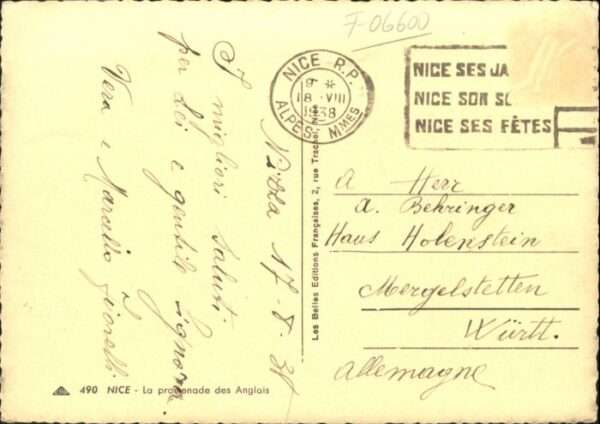 F-06600
NICE R.P.
9 *
18 ·VIII
1938
ALPES MMES
NICE SES JA
NICE SON
NICE SES FÊTES
Nizza 17-8-38
I migliori saluti
per Lei e gentile Signora
Vera e Marcello
Les Belles Editions Françaises, 2, rue
A Herr
A. Behringer
Haus Hohenstein
Mergelstetten
Württ.
Allemagne
490 NICE - La promenade des Anglais